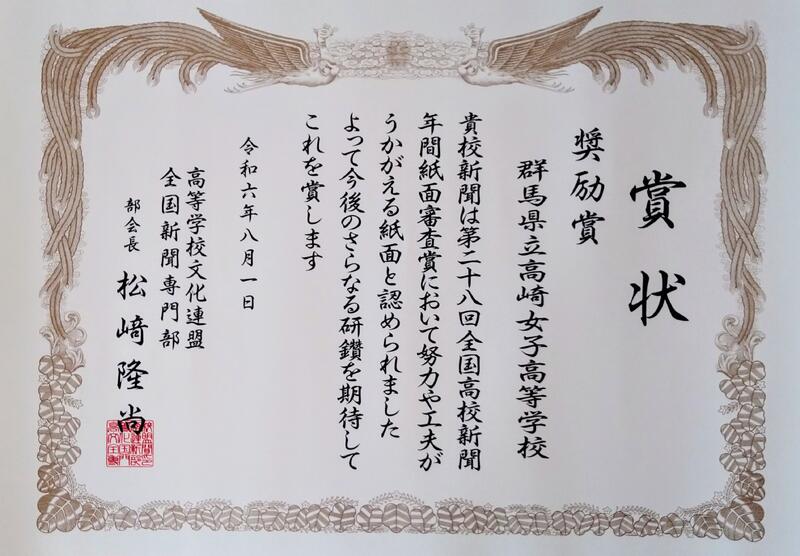 賞状
奨励賞
群馬県立高崎女子高等学校
貴校新聞は第二十八回全国高校新聞
年間紙面審査賞において努力や工夫が
うかがえる紙面と認められました
よって今後のさらなる研鑽を期待して
これを賞します
令和六年八月一日
高等学校文化連盟
全国新聞専門部
部会長 松﨑隆尚